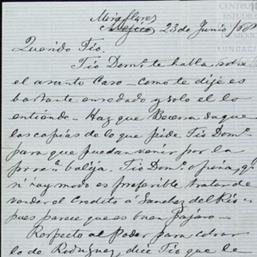 Miraflores
Mexico, 23 de Junio/68
CENTRO
Querido Tio.
Tio Domº te habla sobre
el asunto Caso – como te dije es
bastante enredado y solo el lo
entiende – Haz que Becerra saque
las copias de lo que pide Tio Domº
para que puedan venir por la
valija. Tio Domº opina, q.
si hay modo es preferible tratar de
vender el Credito á Sanchez del Rio –
pues parece que es buen pajaro –
Respecto al Poder para cobrar
lo de Rodriguez, dice Tio que le